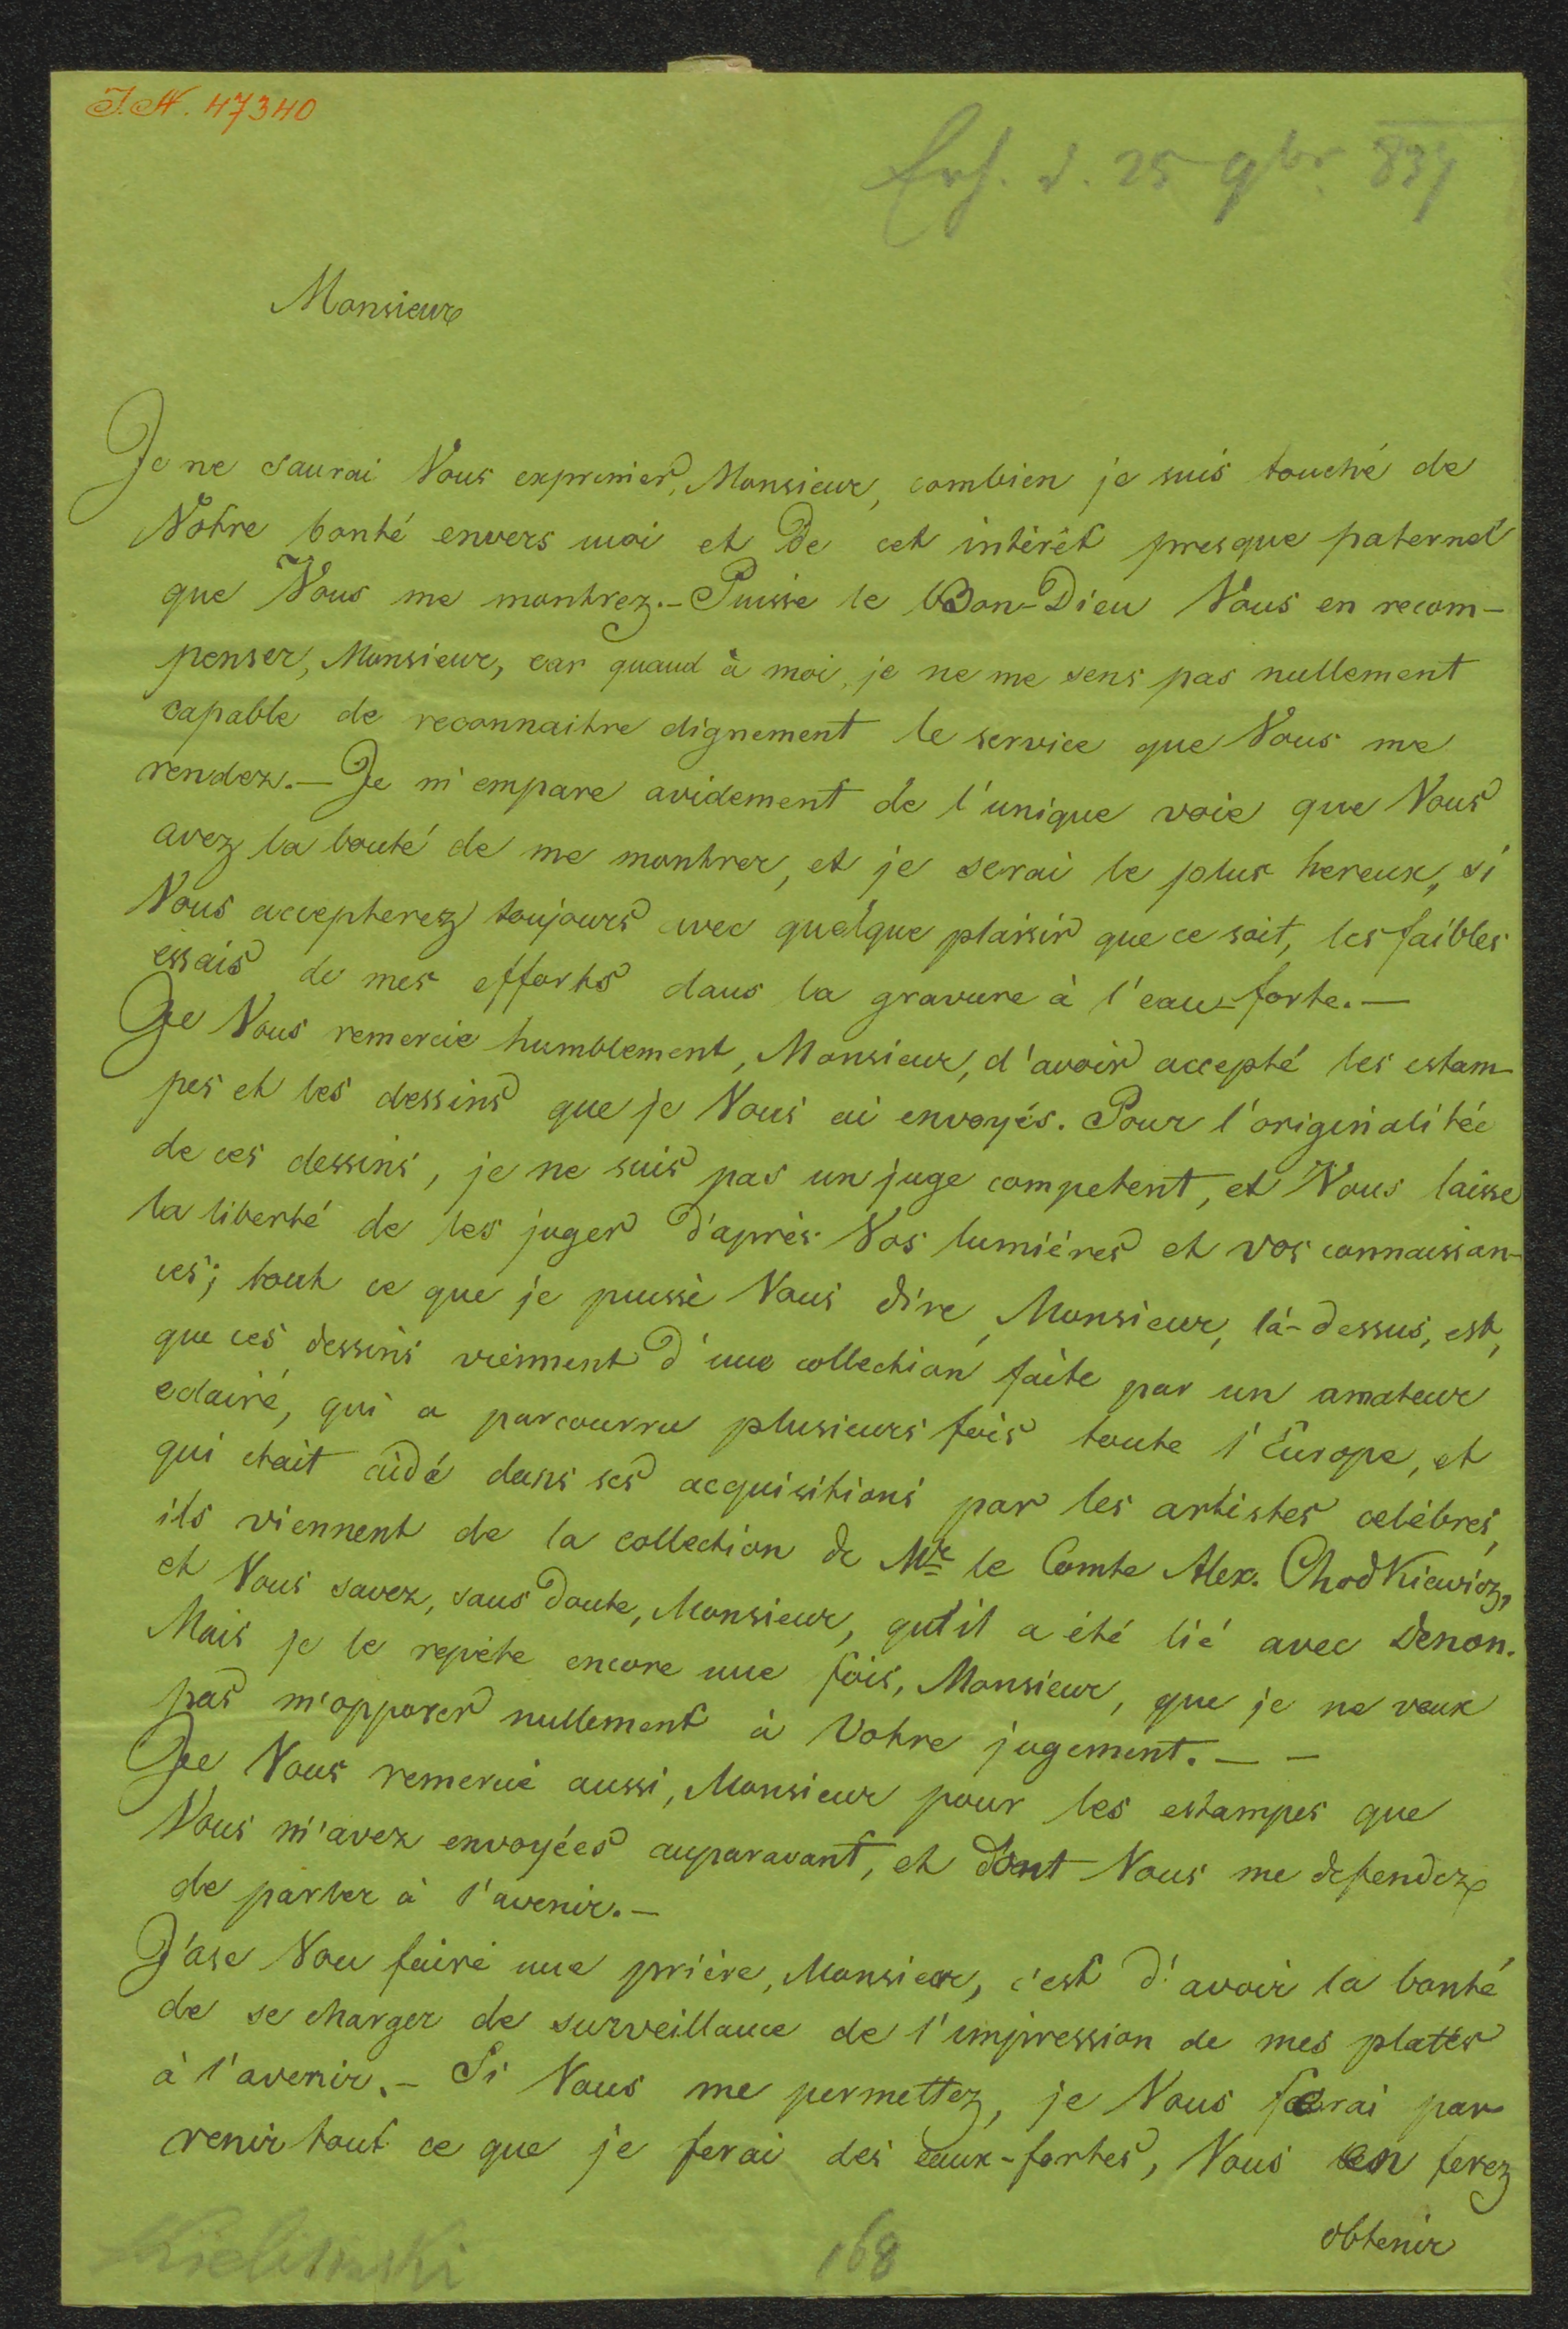 I.N. 47340
Erh. d. 25 9br. 837
Monsieur
Je ne saurai Vous exprimer, Monsieur, combien je suis touché de
Votre bonté envers moi et de cet intérêt presque paternel
que Vous me montrez.- Puisse le Bon-Dieu Vous en recom-
penser, Monsieur, car quand à moi, je ne me sens pas nullement
capable de reconnaitre dignement le service que Vous me
rendez.- Je m'empare avidement de l'unique voie que Vous
avez la bonté de me montrer, et je serai le plus hereux, si
Vous accepterez toujours avec quelque plaisir que ce soit, les faibles
essais de mes efforts dans la gravure à l'eau-forte.-
Je Vous remercie humblement, Monsieur, d'avoir accepté les estam-
pes et les dessins que je Vous ai envoyés. Pour l'originalitée
de ces dessins, je ne suis pas un juge competent, et Vous laisse
la liberté de les juger d'après Vos lumiéres et vos connaissan-
ces; tout ce que je puisse Vous dire, Monsieur, là-dessus, est,
que ces dessins viennent d'une collection faite par un amateur
eclairé, qui a parcourru plusieurs fois toute l'Europe, et
qui etait aidé dans ses acquisitions par les artistes celébres,
ils viennent de la collection de Mr le Comte Alex. Chodkiewicz,
et Vous savez, sans doute, Monsieur, qu'il a été lié avec Denon.
Mais je le repète encore une fois, Monsieur, que je ne veux
pas m'opposer nullement à Votre jugement. - -
Je Vous remercie aussi, Monsieur pour les estampes que
Vous m'avez envoyées auparavant, et dont Vous me defendez
de parler à l'avenir.-
J'ose Vou faire une prière, Monsieur, c'est d'avoir la bonté
de se charger de surveillance de l'impression de mes plates
à l'avenir.- Si Vous me permettez, je Vous ferai par-
venir tout ce que je ferai des eaux-fortes, Vous en ferez
obtenir
Kielisinski
168